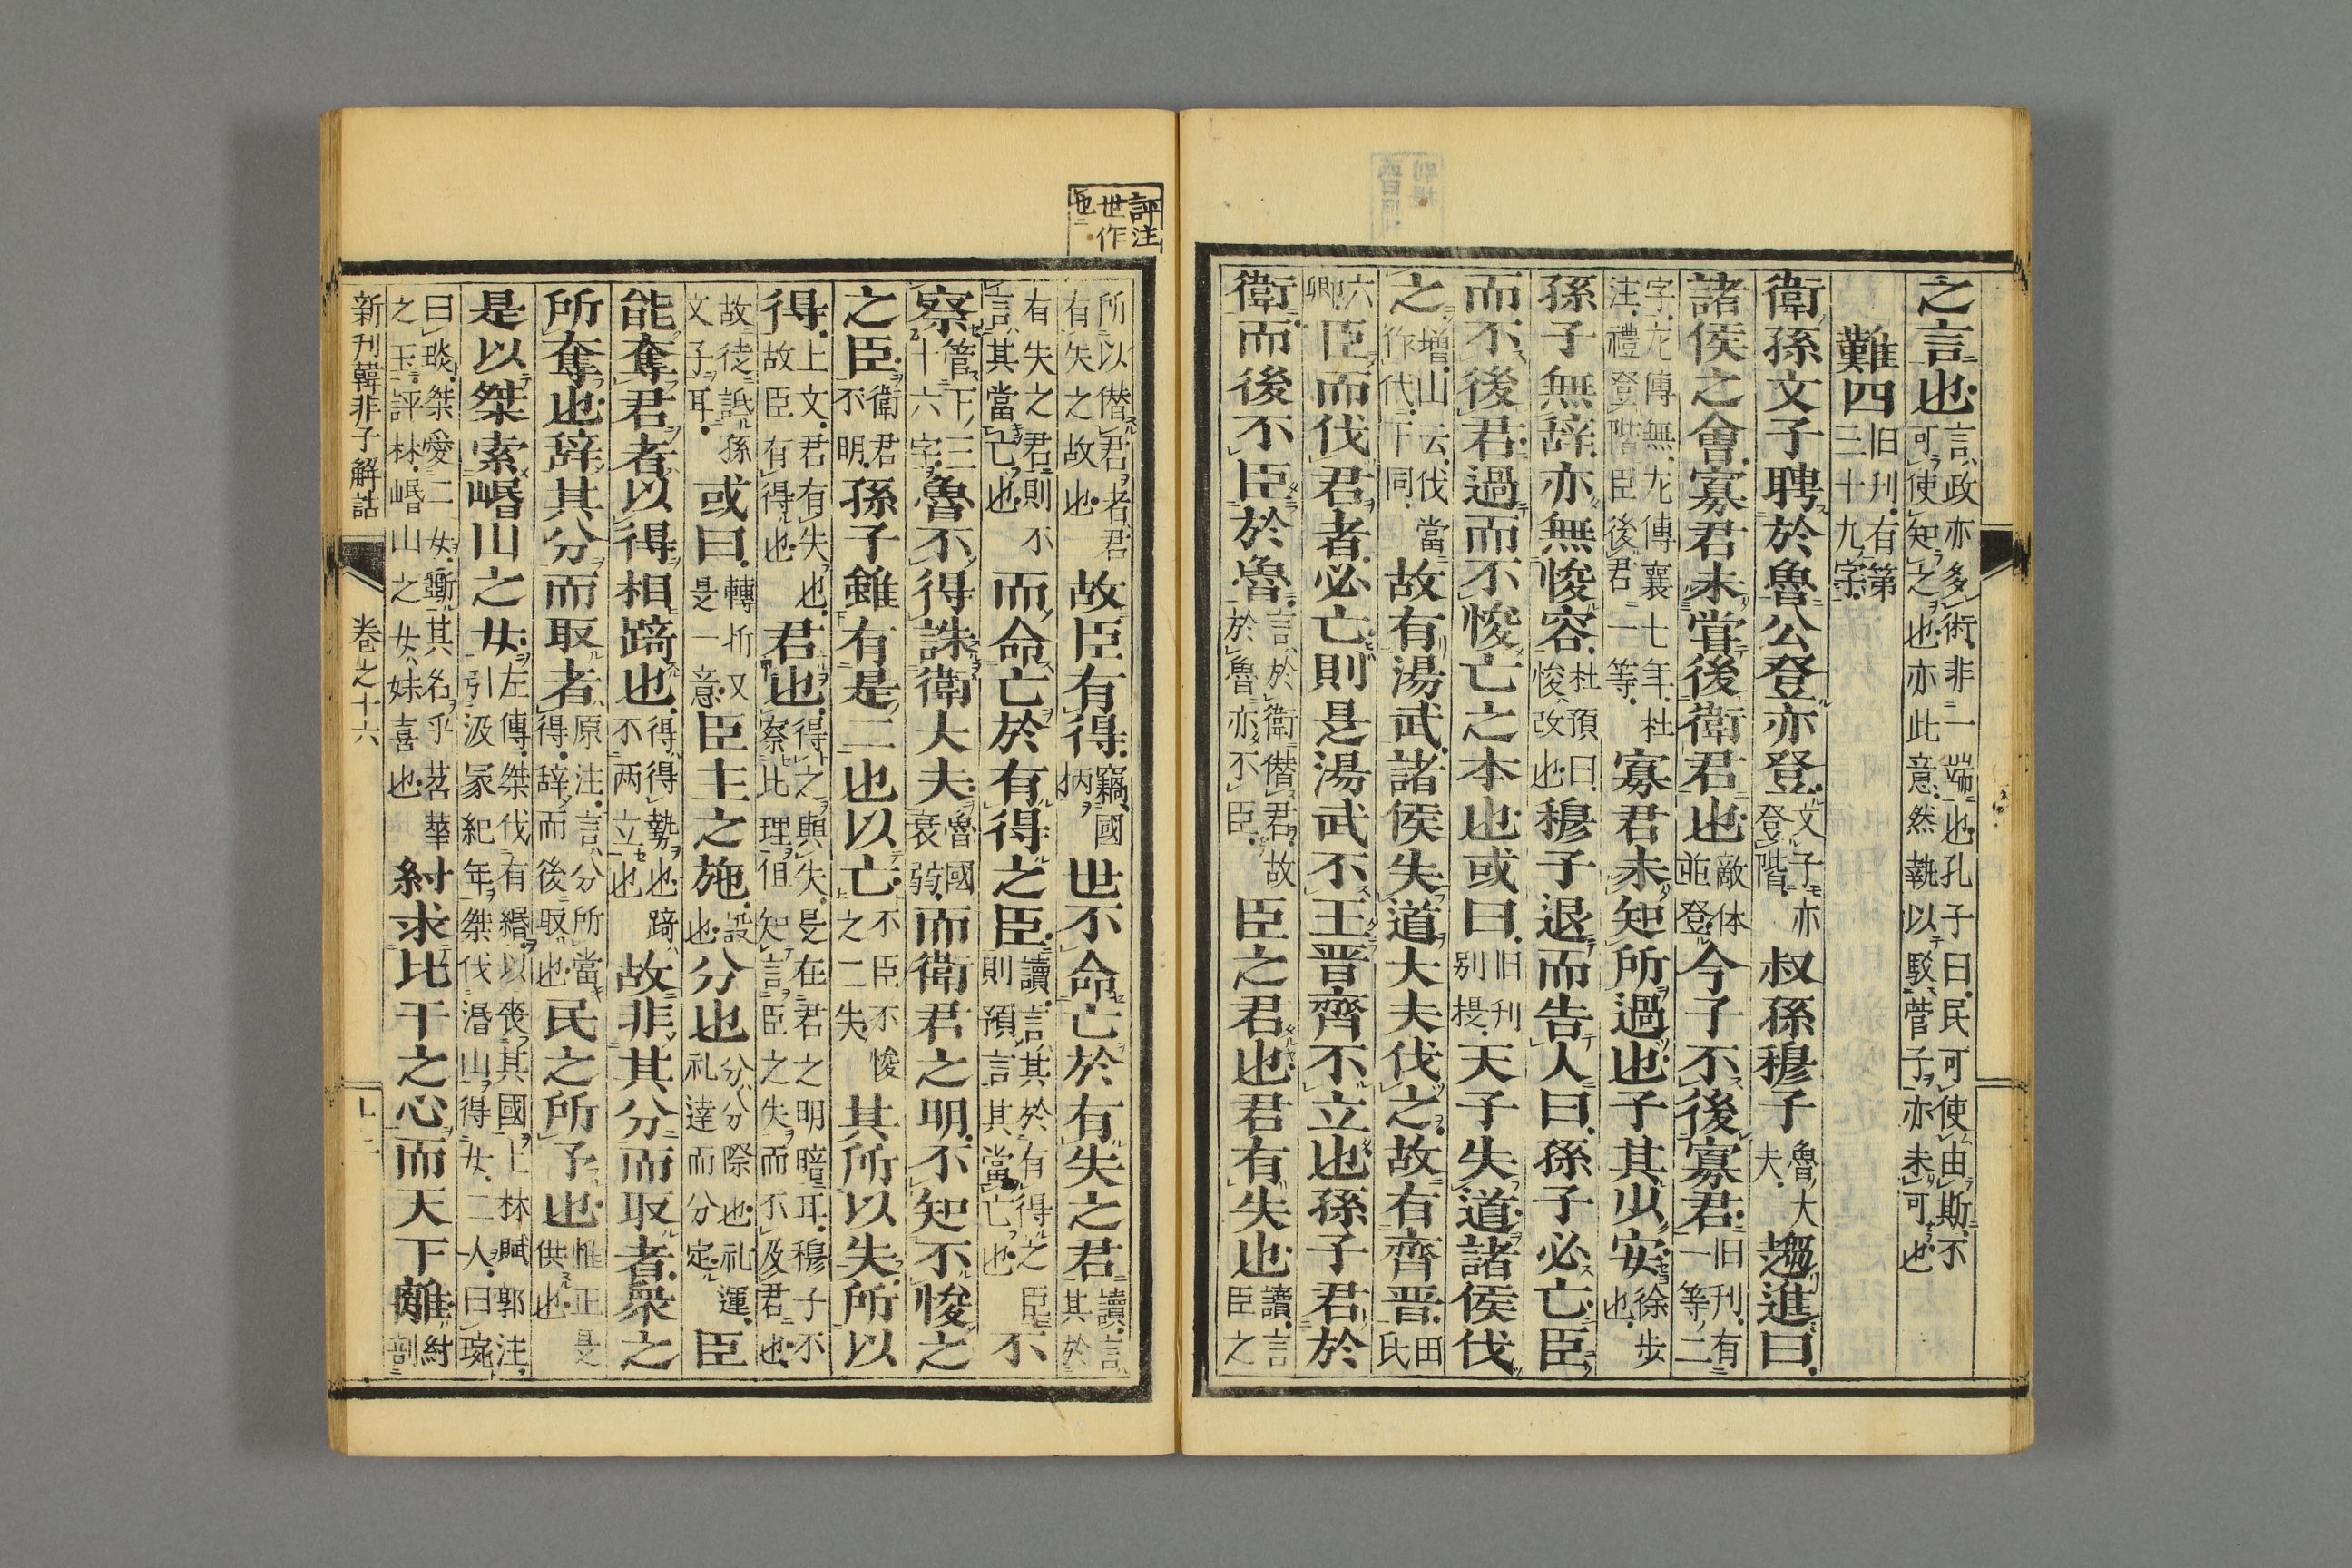 之言也言政亦多術非一端也孔子曰民可使由斯不可使知之也亦此意然執以駁管子亦未可也
難四旧刋有第三十九字
衛孫文子聘於魯公登亦登文子亦登階叔孫穆子魯大夫趨進曰
諸侯之會寡君未甞後衛君也敵体並登今子不後寡君旧刋有一等二
字左傳無左傳襄七年杜注禮登階臣後君一等寡君未知所過也子其少安徐步也
孫子無辞亦無悛容杜預曰悛改也穆子退而告人曰孫子必亡臣
而不後君過而不悛亡之本也或曰旧刋別提天子失道諸侯伐
之増山云伐當作代下同故有湯武諸侯失道大夫伐之故有齊晋田氏
六卿臣而伐君者必亡則是湯武不王晋齊不立也孫子君於
衛而後不臣於魯言於衛僭君故於魯亦不臣臣之君也君有失也讀言臣之
評注世作也
所以僭君者君有失之故也故臣有得竊國柄世不命亡於有失之君讀言其於
有失之君則不言其當亡也而命亡於有得之臣讀言其於有得之臣則預言其當亡也不
察管下三十六字魯不得誅衛大夫魯國衰弱而衛君之明不知不悛之
之臣衛君不明孫子雖有是二也以亡不臣不悛之二失其所以失所以
得上文君有失也故臣有得也君也得之與失是在君之明暗耳穆子不察比理但知言臣之失而不及君也
故徒詆孫文子耳或曰轉折又是一意臣主之施設也分也分分際也礼運礼達而分定臣
能奪君者以得相踦也得得勢也踦不両立也故非其分而取者衆之
所奪也辞其分而取者原注言分所當得辞而後取也民之所予也惟正是供也
是以桀索㟭山之女左傳桀伐有緡以喪其國上林賦郭注引汲冡紀年桀伐湣山得女二人曰琬
曰琰桀愛二女斲其名乎苕華之玉評林㟭山之女妺喜也紂求比干之心而天下離紂剖
新刋韓非子解詁
卷之十六